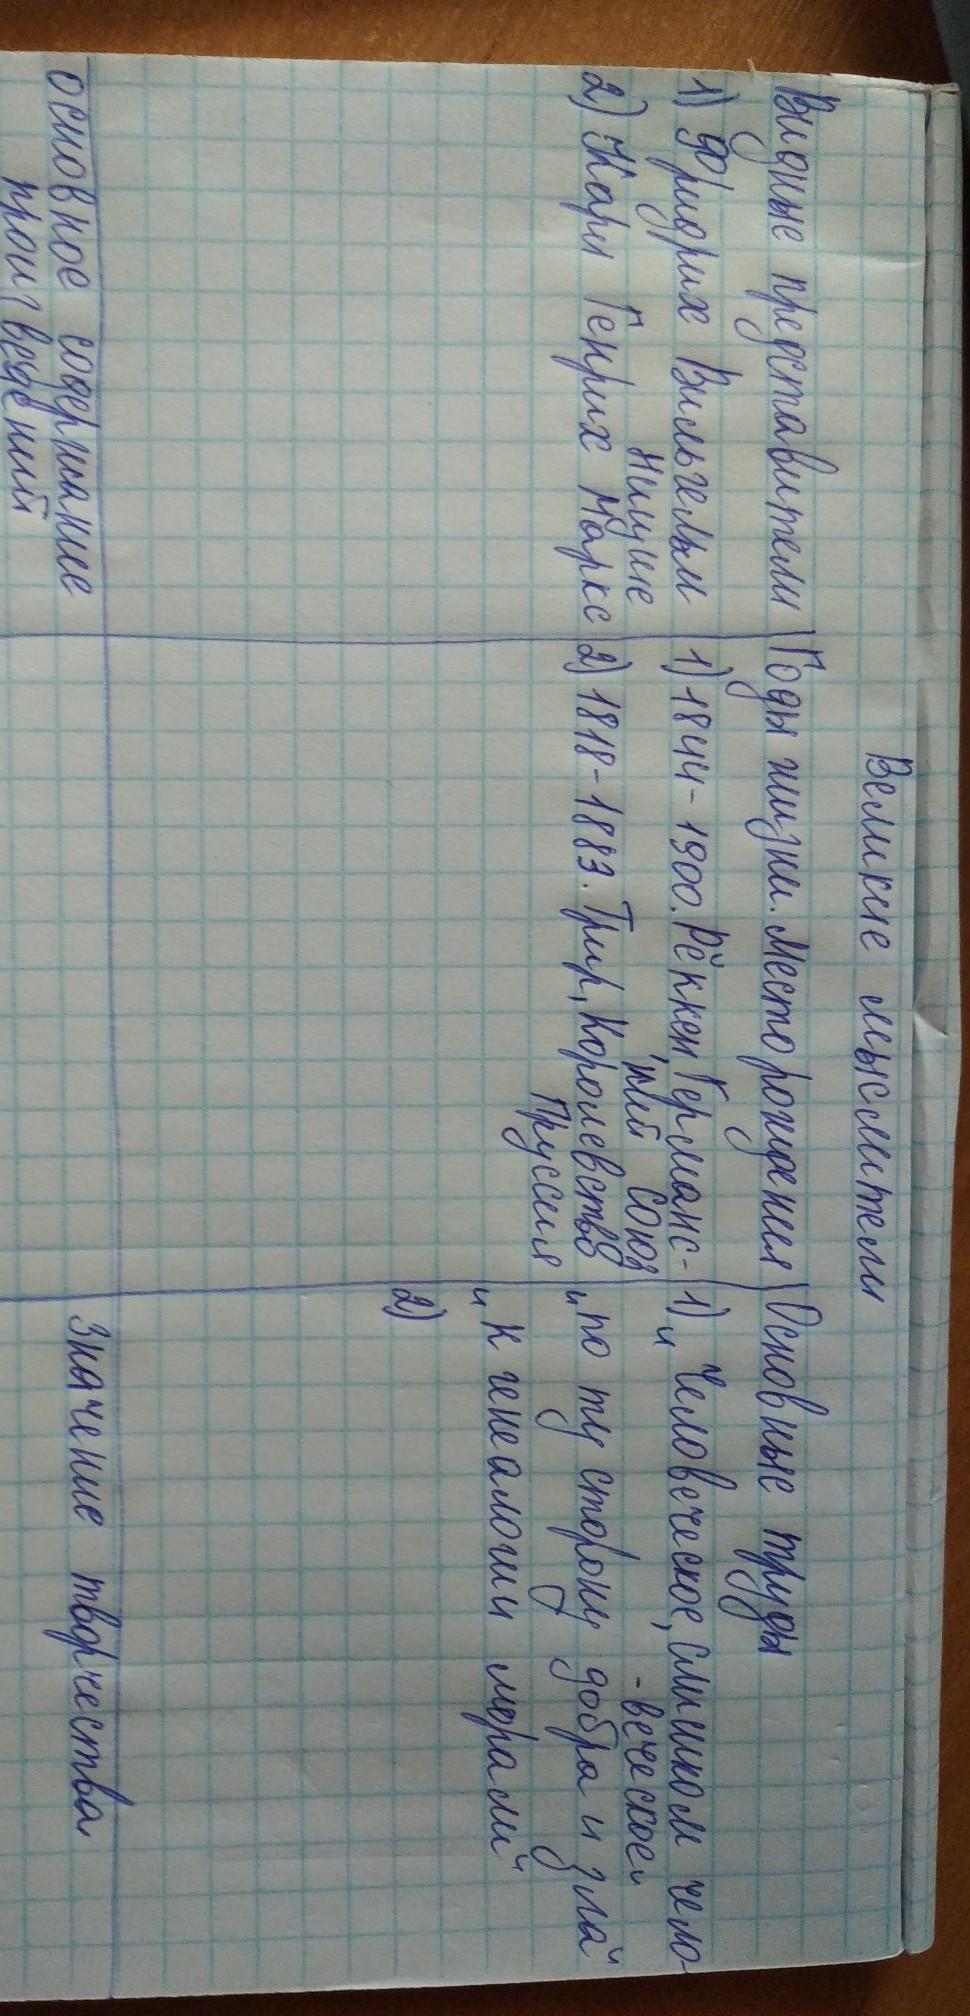 Великие мыслители
Видные представители
1) Фридрих Вильгельм
Ницше
2) Карл Генрих Маркс
Годы жизни. Место рождения
1) 1844-1900. Рёккен, Германс-
кий союз
2) 1818-1883. Трир, Королевство
Пруссия
Основные труды
1) "Человеческое, слишком чело-
-веческое"
"По ту сторону добра и зла"
"К генеалогии морали"
2)
основное содержание
произведений
значение творчества